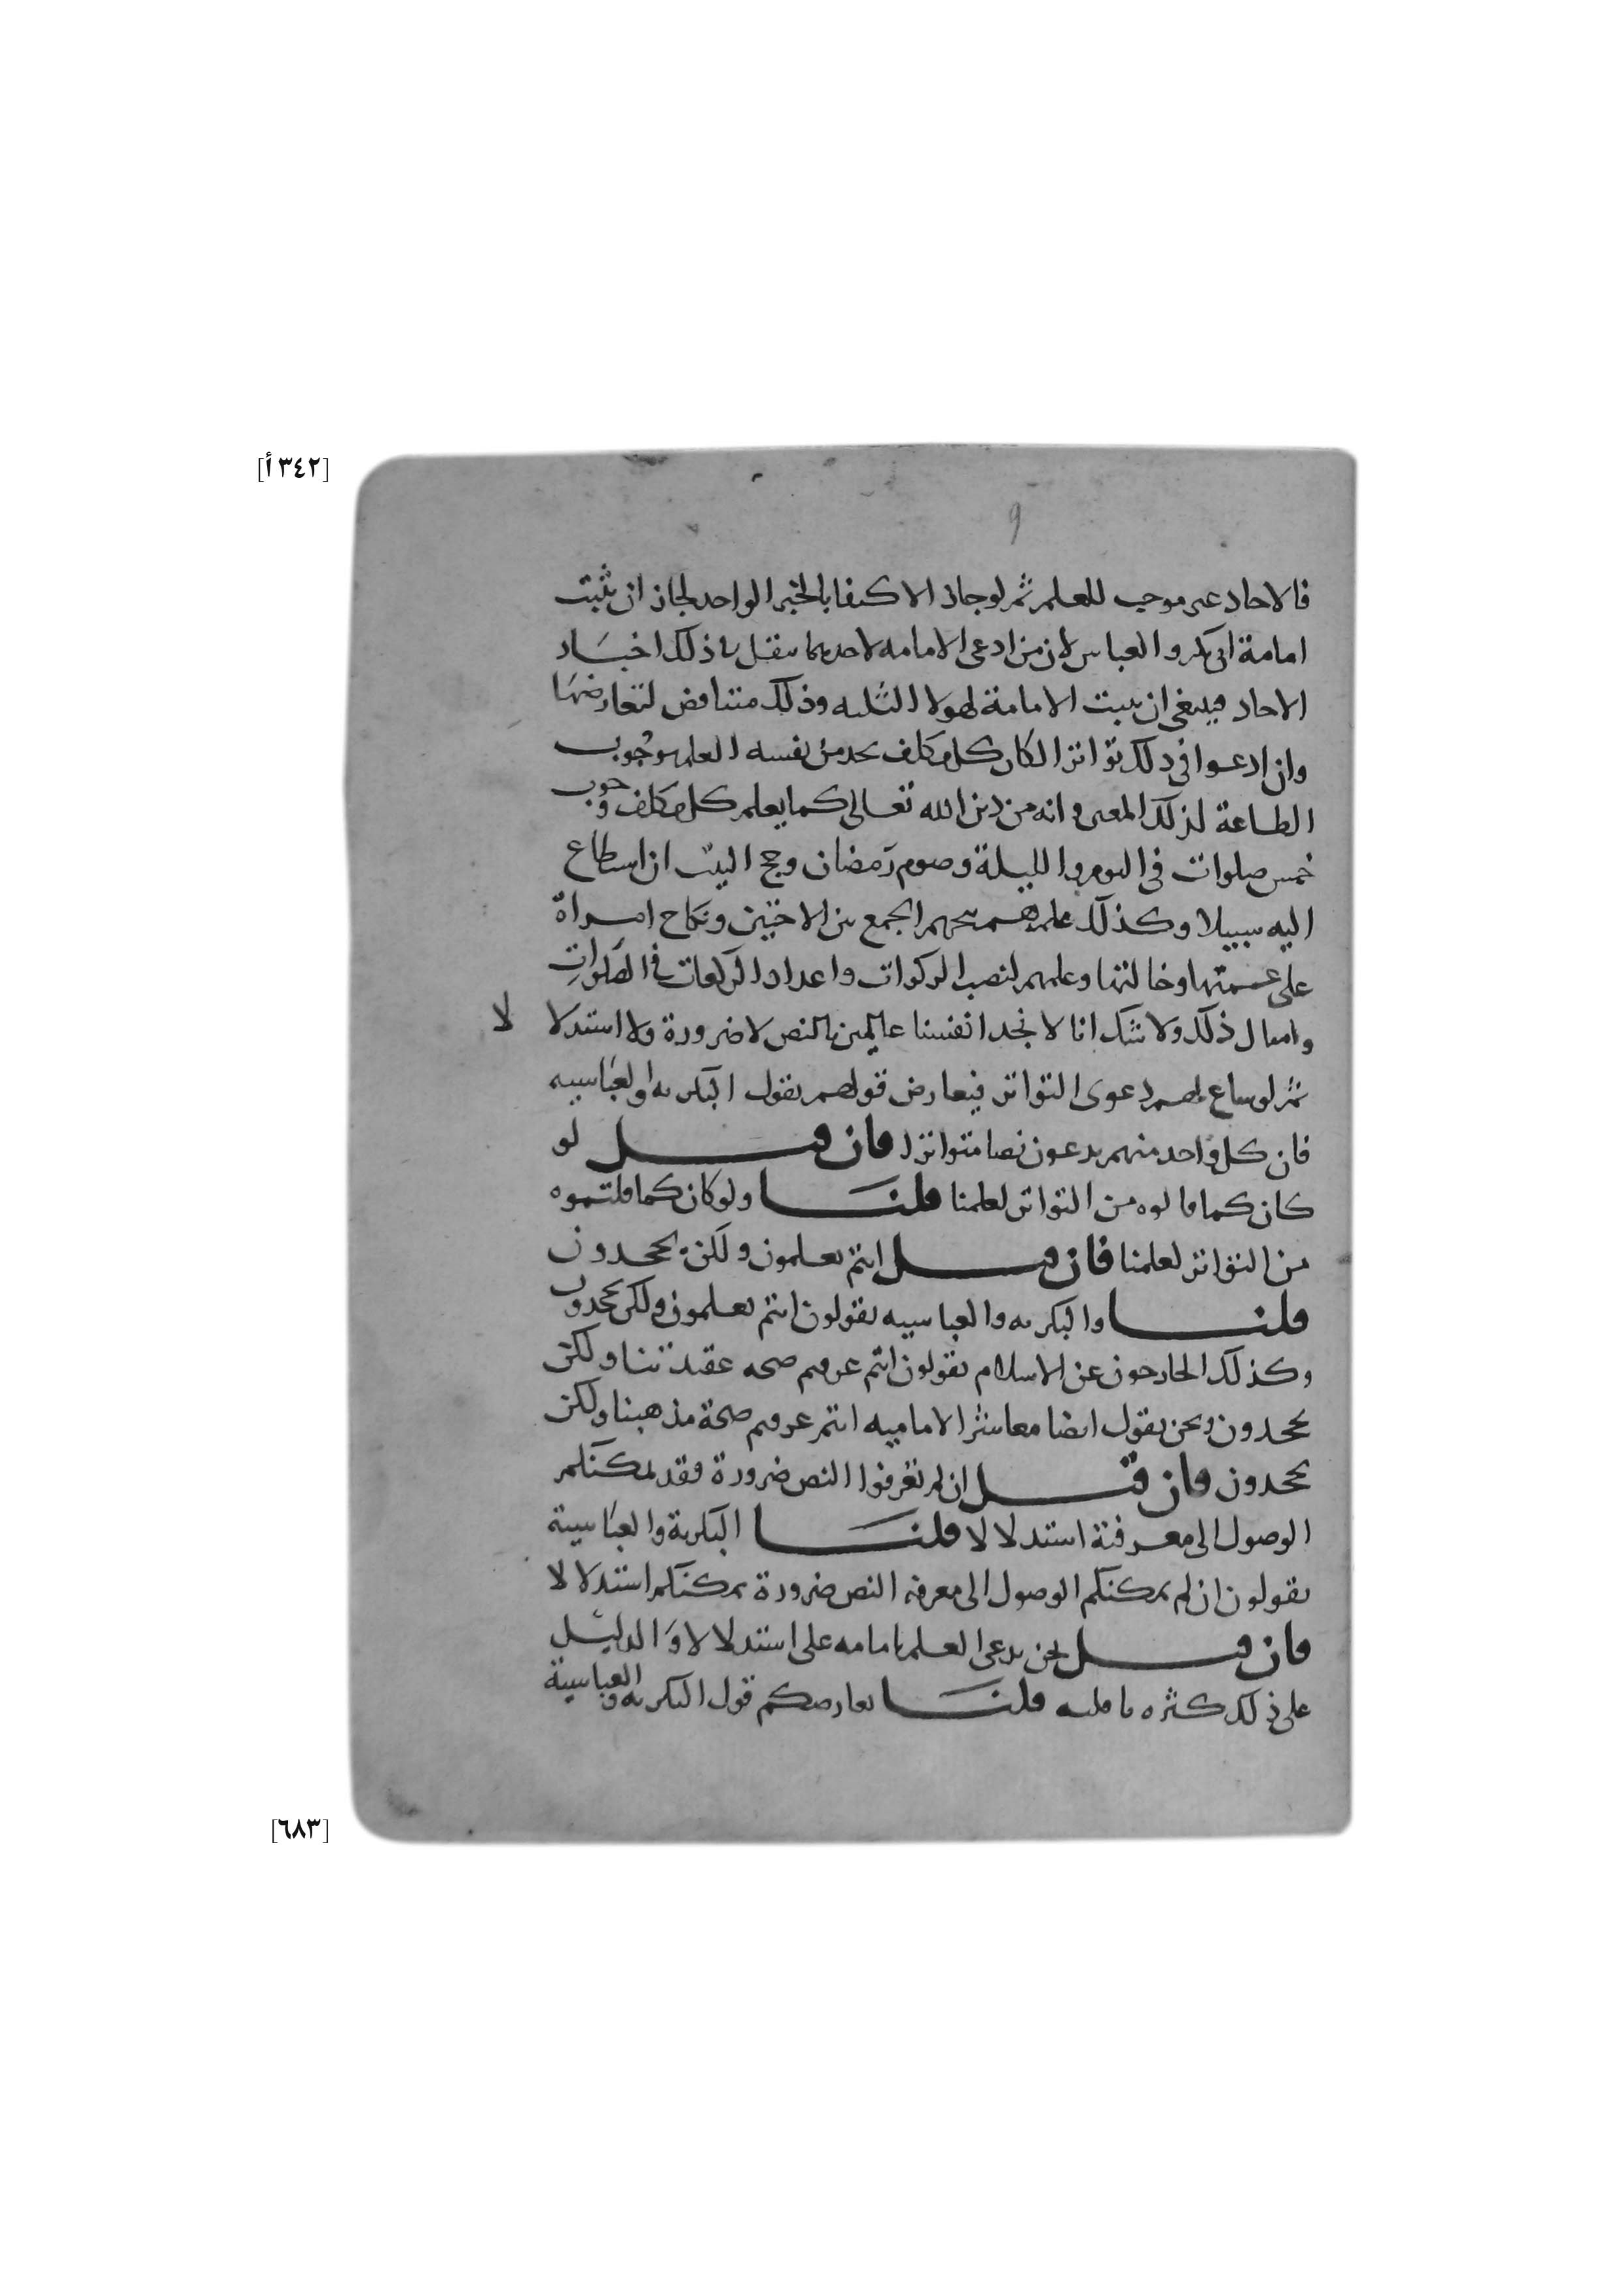 [٣٤٢ أ]
٩
فالاحاد غير موجب للعلم ثم لو جاز الاكتفا بالخبر الواحد لجاز ان يثبت
امامة ابي بكر والعباس لان من ادعى الامامه لاحدهما ينقل في ذلك اخبار
الاحاد فينبغي ان يثبت الامامة لهولا الثلثه وذلك متناقض لتعارضها
وان ادعوا في ذلك تواترا لكان كل مكلف يجد من نفسه العلم بوجوب
الطاعة لذلك المعنى وانه من دين الله تعالى كما يعلم كل مكلف وجوب
خمس صلوات في اليوم والليلة وصوم رمضان وحج البيت ان استطاع
اليه سبيلا وكذلك علمهم بتحريم الجمع بين الاختين ونكاح امراة
على عمتها وخالتها وعلمهم بنصب الزكوات واعداد الركعات في الصلوات
وامثال ذلك ولا شك انا لا نجد انفسنا عالمين بالنص لا ضرورة ولا استدلا لا
ثم لو ساع لهم دعوى التواتر فيعارض قولهم بقول البكريه والعباسيه
فان كل واحد منهم يدعون نصا متواترا فان قيل لو
كان كما قالوه من التواتر لعلمنا قلنا ولو كان كما قلتموه
من التواتر لعلمنا فان قيل انتم تعلمون ولكن تجحدون
قلنا والبكريه والعباسيه يقولون انتم تعلمون ولكن تجحدون
وكذلك الخارجون عن الاسلام يقولون انتم عرفتم صحه عقيدتنا ولكن
تجحدون ونحن نقول ايضا معاشر الاماميه انتم عرفتم صحة مذهبنا ولكن
تجحدون فان قيل ان لم تعرفوا النص ضرورة فقد يمكنكم
الوصول الى معرفته استدلالا قلنا البكرية والعباسية
يقولون ان لم يمكنكم الوصول الى معرفه النص ضرورة يمكنكم استدلالا
فان قيل نحن ندعي العلم بامامه على استدلالا والدليل
على ذلك كثره ناقليه قلنا يعارضكم قول البكريه والعباسية
[٦٨٣]